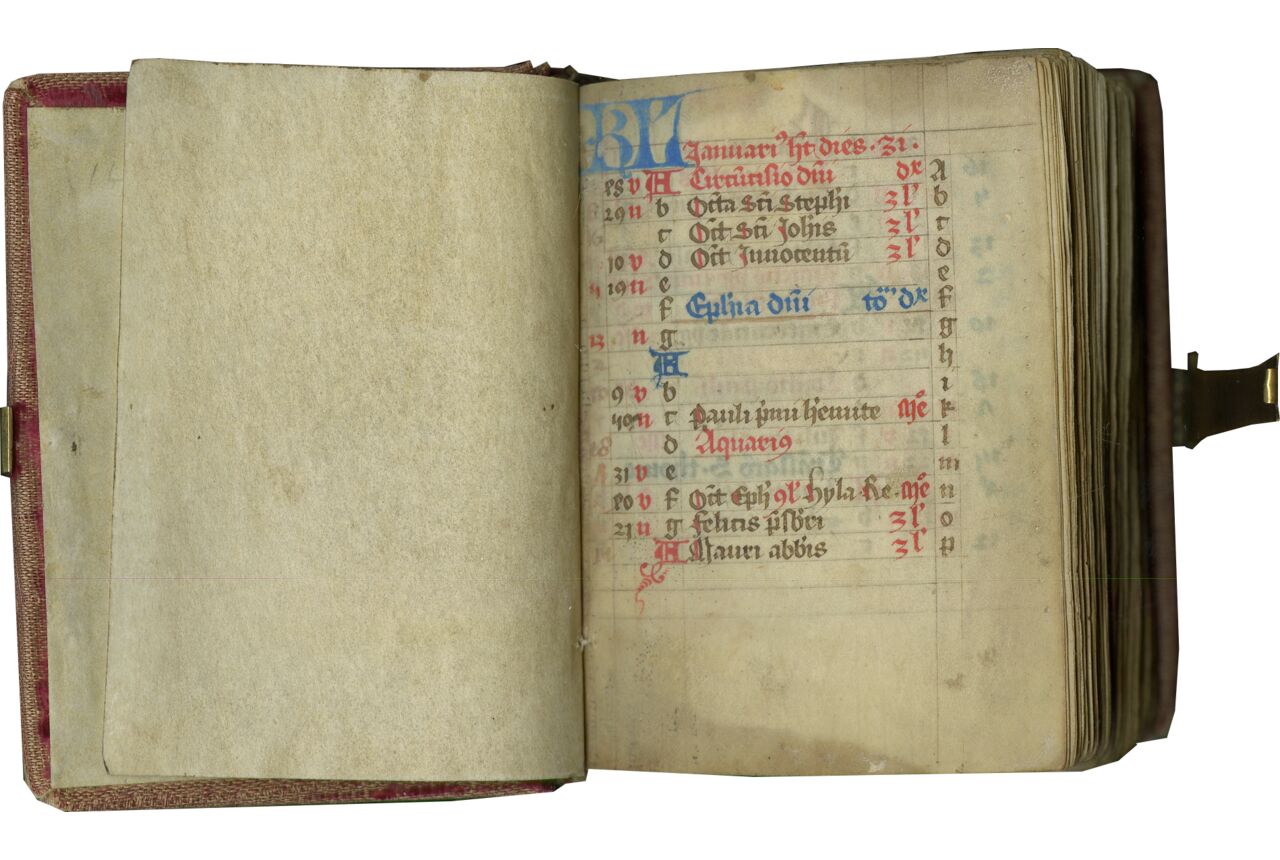 KL Januari⁹ ht dies · 31 ·
v A Circūcisio dn̄i dx A
29 n b Octa Sc̄i Steph̄i 3 l' b
c Oct̄ Sc̄i Joh̄is 3 l' c
10 v d Oct̄ Innocentū 3 l' d
19 n e e
f Eph̄ia dn̄i to dx f
13 n g g
A h
9 v b i
n c Pauli p̄mi h̄emite k
d Aquari⁹ l
31 v e m
v f Oct̄ Eph̄ 9l' hyla Re · n
21 n g felicis p̄sb̄ri 3 l' o
A Mauri abb̄is 3 l' p